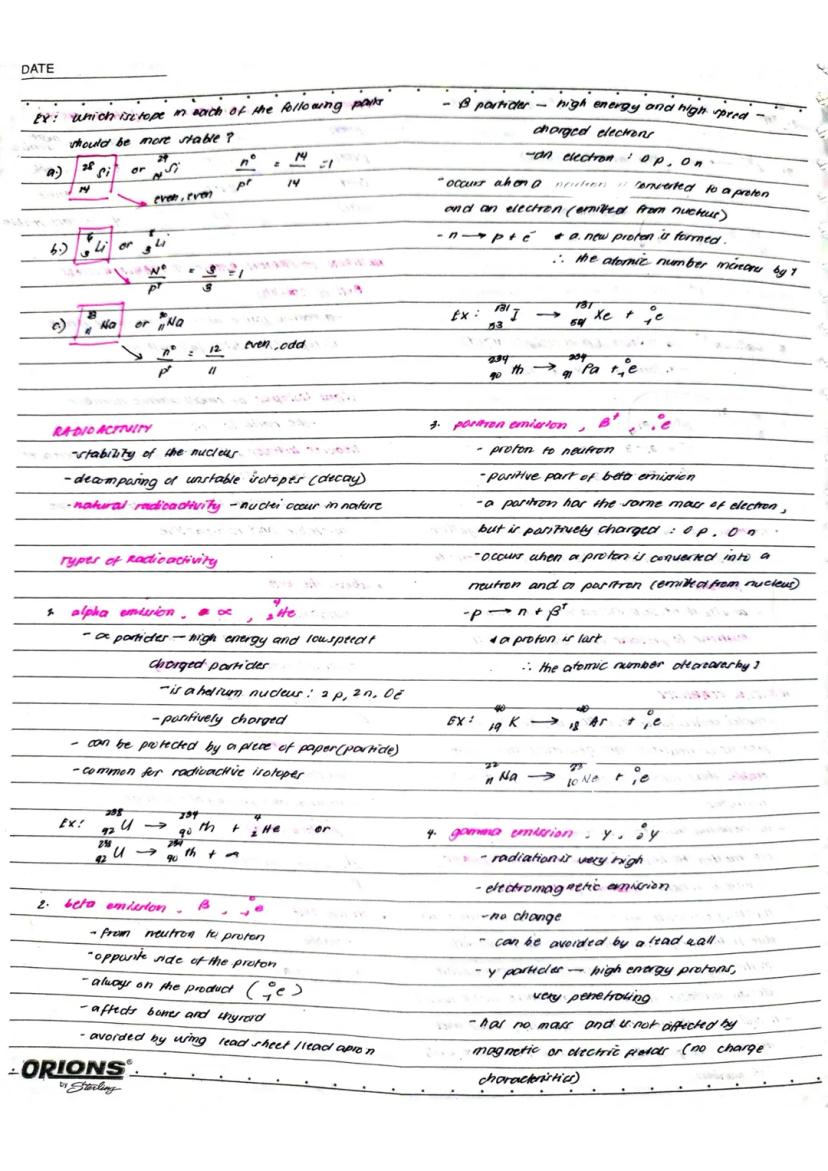 DATE
Ex: which isotope in each of the following pairs
should be more stable?
a.) ²⁸₁₄Si or ²⁹₁₄Si n⁰/p⁺ = 14/14 = 1
even, even
b.) ⁶₃Li or ⁸₃Li
N⁰/p⁺ = 3/3 = 1
c.) ²³₁₁Na or ²⁰₁₁Na
n⁰/p⁺ = 12/11 even, odd
RADIOACTIVITY
- stability of the nucleus
- decomposing of unstable isotopes (decay)
- natural radioactivity - nuclei occur in nature
Types of Radioactivity
1. alpha emission, α, ⁴₂He
- α particles - high energy and low speed +
charged particles
- is a helium nucleus: 2p, 2n, 0ē
- positively charged
- can be protected by a piece of paper (particle)
- common for radioactive isotopes
Ex: ²³⁸₉₂U → ²³⁴₉₀Th + ⁴₂He or
²³⁸₉₂U → ²³⁴₉₀Th + α
2. beta emission, β, ⁰₋₁e
- from neutron to proton
- opposite side of the proton
- always on the product (⁰₋₁e)
- affects bones and thyroid
- avoided by using lead sheet / lead apron
- β particles - high energy and high speed -
charged electrons
- an electron: 0p, 0n
- occurs when a neutron is converted to a proton
and an electron (emitted from nucleus)
- n → p + ē * a new proton is formed.
∴ the atomic number increases by 1
Ex: ¹³¹₅₃I → ¹³¹₅₄Xe + ⁰₋₁e
²³⁴₉₀Th → ²³⁴₉₁Pa + ⁰₋₁e
3. positron emission, β⁺, ⁰₊₁e
- proton to neutron
- positive part of beta emission
- a positron has the same mass of electron,
but is positively charged: 0p, 0n
- occurs when a proton is converted into a
neutron and a positron (emitted from nucleus)
- p → n + β⁺
* a proton is lost
∴ the atomic number decreases by 1
EX: ⁴⁰₁₉K → ⁴⁰₁₈Ar + ⁰₁e
²²₁₁Na → ₁₀Ne + ⁰₁e
4. gamma emission, γ, ⁰₀γ
- radiation is very high
- electromagnetic emission
- no change
- can be avoided by a lead wall
- γ particles - high energy protons,
very penetrating
- has no mass and is not affected by
magnetic or electric fields (no charge
characteristics)
ORIONS®
by Sterling